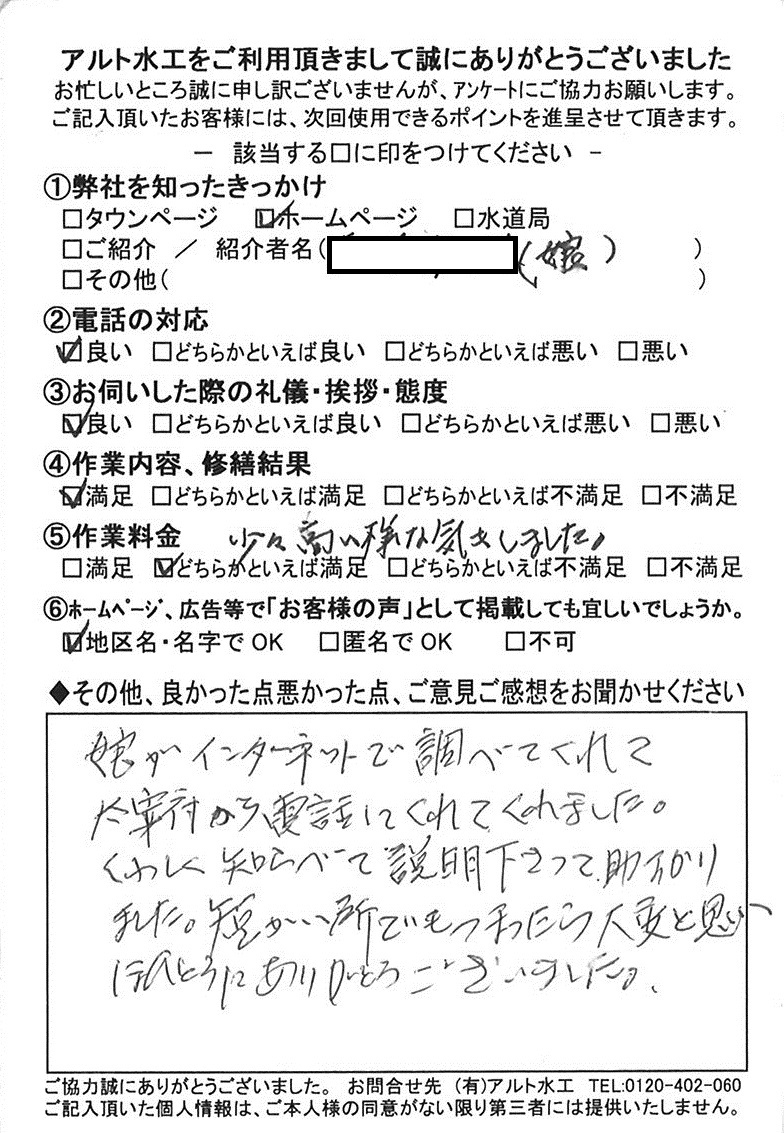 アルト水工をご利用頂きまして誠にありがとうございました
お忙しいところ誠に申し訳ございませんが、アンケートにご協力お願いします。
ご記入頂いたお客様には、次回使用できるポイントを進呈させて頂きます。
－ 該当する□に印をつけてください －
①弊社を知ったきっかけ
□タウンページ ☑ホームページ □水道局
□ご紹介 ／ 紹介者名( (嫁) )
□その他( )
②電話の対応
☑良い □どちらかといえば良い □どちらかといえば悪い □悪い
③お伺いした際の礼儀・挨拶・態度
☑良い □どちらかといえば良い □どちらかといえば悪い □悪い
④作業内容、修繕結果
☑満足 □どちらかといえば満足 □どちらかといえば不満足 □不満足
⑤作業料金 少々高い様な気もしました。
□満足 ☑どちらかといえば満足 □どちらかといえば不満足 □不満足
⑥ホームページ、広告等で「お客様の声」として掲載しても宜しいでしょうか。
☑地区名・名字でOK □匿名でOK □不可
◆その他、良かった点悪かった点、ご意見ご感想をお聞かせください
嫁がインターネットで調べてくれて
太宰府から電話してくれてくれました。
くわしく知らべて説明下さって助かり
ました。短かい所でもつまったら大変と思い
ほんとうにありがとうございました。
ご協力誠にありがとうございました。 お問合せ先 (有)アルト水工 TEL:0120-402-060
ご記入頂いた個人情報は、ご本人様の同意がない限り第三者には提供いたしません。